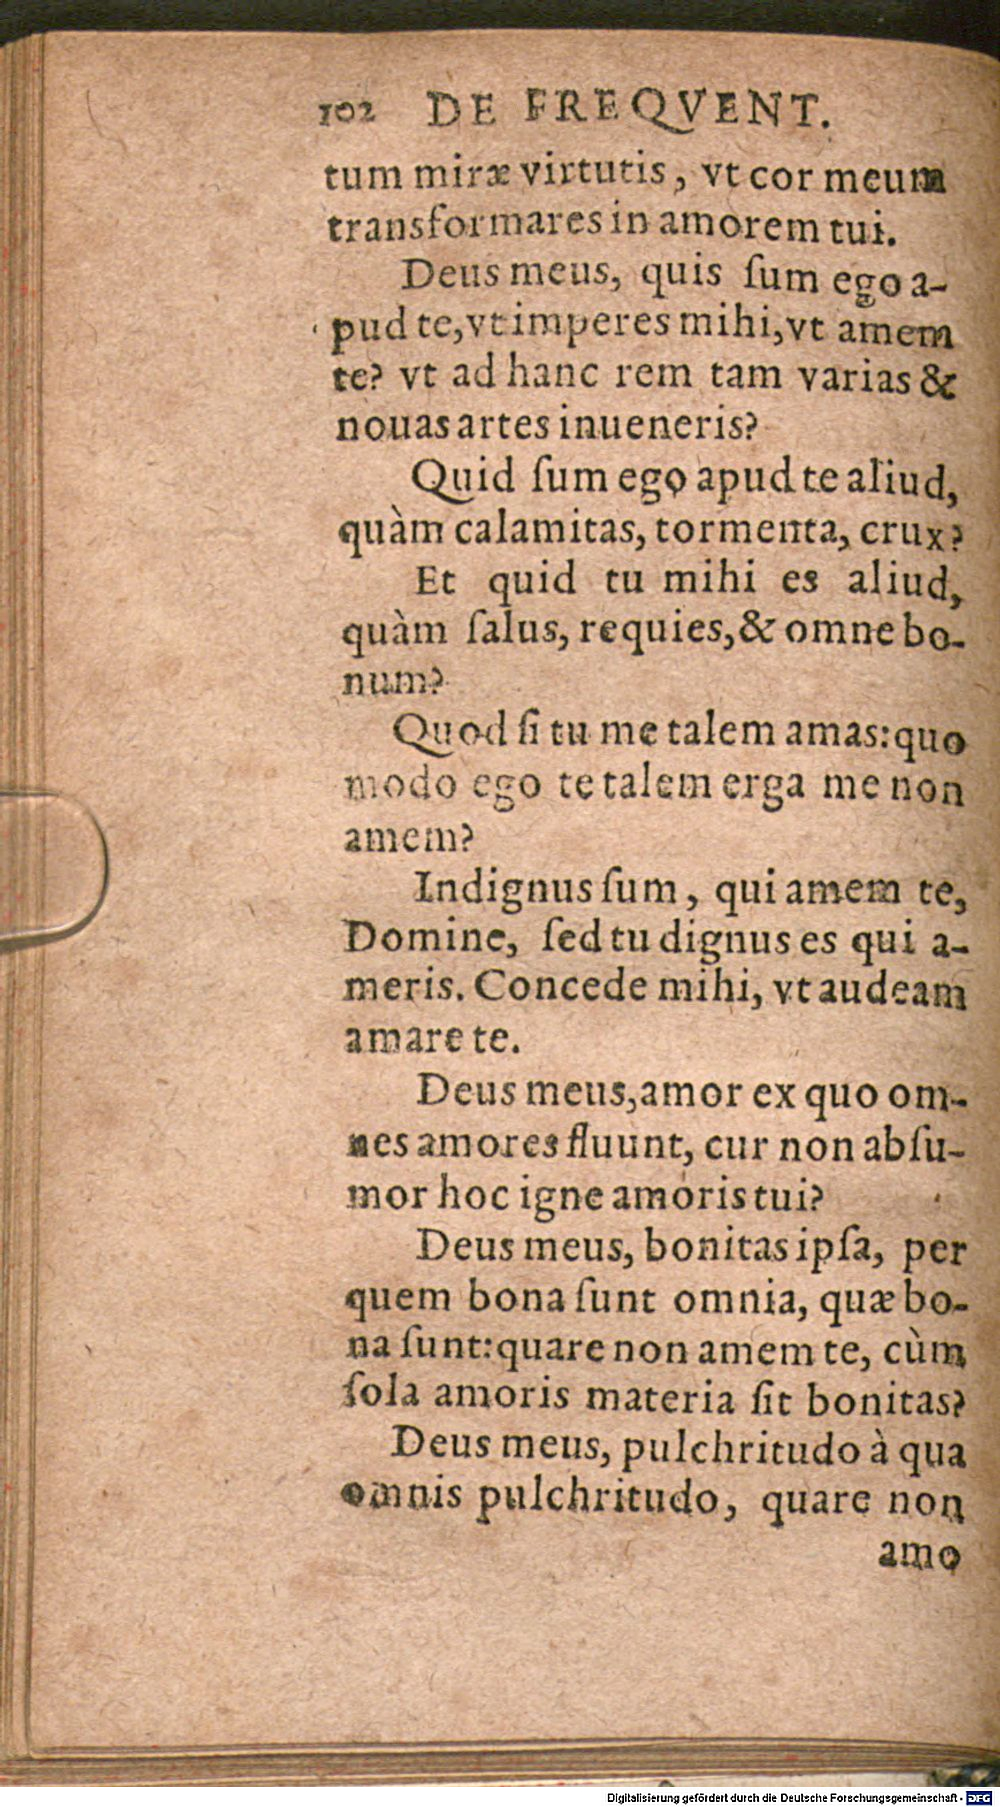 102 DE FREQVENT.
tum miræ virtutis, vt cor meum
transformares in amorem tui.
Deus meus, quis ſum ego a-
pud te, vt imperes mihi, vt amem
te? vt ad hanc rem tam varias &
nouas artes inueneris?
Quid ſum ego apud te aliud,
quàm calamitas, tormenta, crux?
Et quid tu mihi es aliud,
quàm ſalus, requies, & omne bo-
num?
Quod ſi tu me talem amas: quo
modo ego te talem erga me non
amem?
Indignus ſum, qui amem te,
Domine, ſed tu dignus es qui a-
meris. Concede mihi, vt audeam
amare te.
Deus meus, amor ex quo om-
nes amores fluunt, cur non abſu-
mor hoc igne amoris tui?
Deus meus, bonitas ipſa, per
quem bona ſunt omnia, quæ bo-
na ſunt: quare non amem te, cùm
ſola amoris materia ſit bonitas?
Deus meus, pulchritudo à qua
omnis pulchritudo, quare non
amo
Digitalisierung gefördert durch die Deutsche Forschungsgemeinschaft - DFG